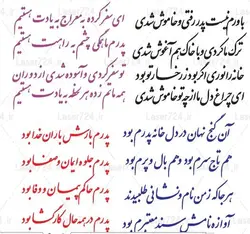 بادرم نیست پدر رفتی و خاموش شدی
ترک ما کردی و با خاک هم آغوش شدی
خانه را نوری اگر بود ز رخسار تو بود
ای چراغ دل ما از چه تو خاموش شدی
ای سفر کرده به معراج به یادت هستیم
پدرم ما همگی چشم به راهت هستیم
تو سفر کردی و آسوده شدی از دوران
همه ماتم زده هر لحظه به یادت هستیم
آن گنج نهان در دل خانه پدرم بود
هم تاج سرم بود و هم بال و پرم بود
هر جا که ز من نام و نشانی طلبیدند
آوازه نامش سند معتبرم بود
پدرم بارش باران خدا بود
پدرم جلوه ایمان و صفا بود
پدرم حاکم پیمان و وفا بود
پدرم در همه حال کارگشا بود